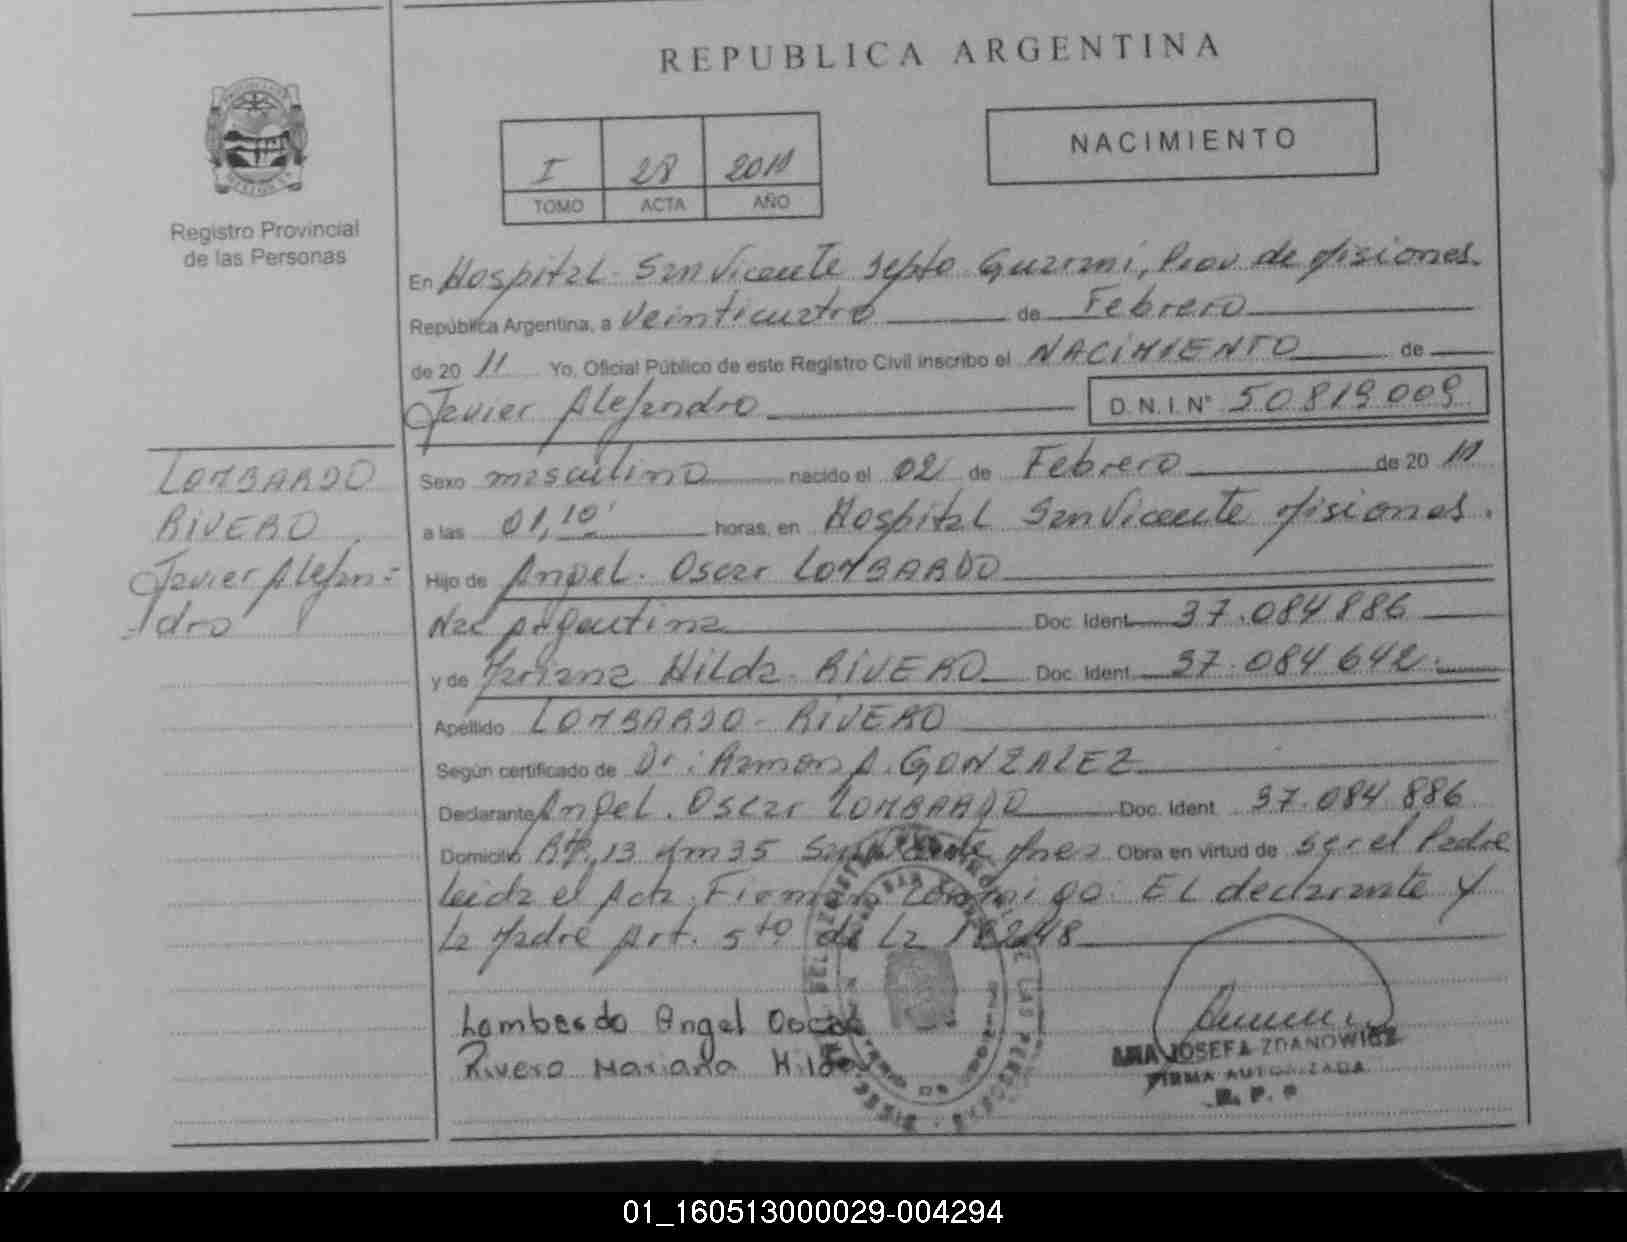 REPUBLICA ARGENTINA
NACIMIENTO
I 28 2011
TOMO ACTA AÑO
Registro Provincial
de las Personas
En Hospital San Vicente Depto Guarani, Prov de Misiones.
República Argentina, a Veinticuatro de Febrero
de 20 11 Yo, Oficial Público de este Registro Civil inscribo el NACIMIENTO de
Javier Alejandro D.N.I. N° 50819009
LOMBARDO
RIVERO
Javier Alejan-
dro
Sexo masculino nacido el 02 de Febrero de 20 11
a las 01,10' horas, en Hospital San Vicente Misiones.
Hijo de Angel. Oscar LOMBARDO
Nac Argentina Doc. Ident. 37.084886
y de Mariana Hilda RIVERO Doc. Ident. 37.084642.
Apellido LOMBARDO - RIVERO
Según certificado de Dr: Ramon A. GONZALEZ
Declarante Angel. Oscar LOMBARDO Doc. Ident. 37.084 886
Domicilio 13 Km 35 San Vicente Mnes Obra en virtud de ser el Padre
Leida el Acta, Firman conmigo: EL declarante y
La Madre Art. 5to de La 18248
Lombardo Angel Oscar
Rivero Mariana Hilda
ANA JOSEFA ZDANOWICZ
FIRMA AUTORIZADA
R. P. P
DE LAS PERSONAS
01_160513000029-004294